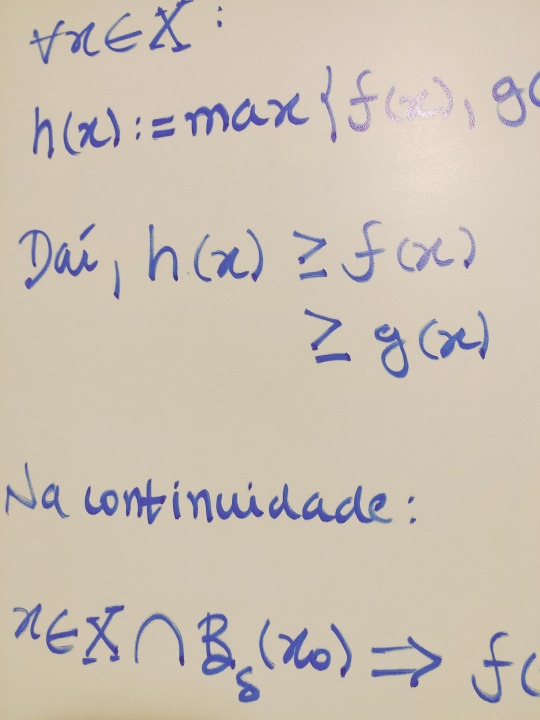 ∀x∈X:
h(x):=max{f(x), g(
Daí, h(x) ≥ f(x)
≥ g(x)
Na continuidade:
x∈X∩B_δ(x₀) ⇒ f(